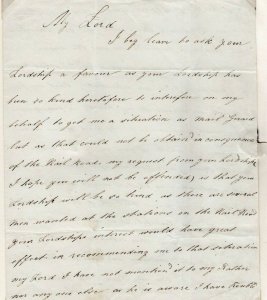 My Lord
I beg leave to ask your
Lordship a favour as your Lordship has
been so kind heretofore to interfere on my
behalf to get me a situation as Mail Guard
but as that could not be obtain'd in consequence
of the Rail Road my request from your Lordship
I hope you will not be offended is that your
Lordship will be so kind as there are several
men wanted at the stations on the Rail Road
your Lordships interest would have great
effect in recommending me to that situation
my Lord I have not mention'd it to my Father
nor any one else as he is aware I have